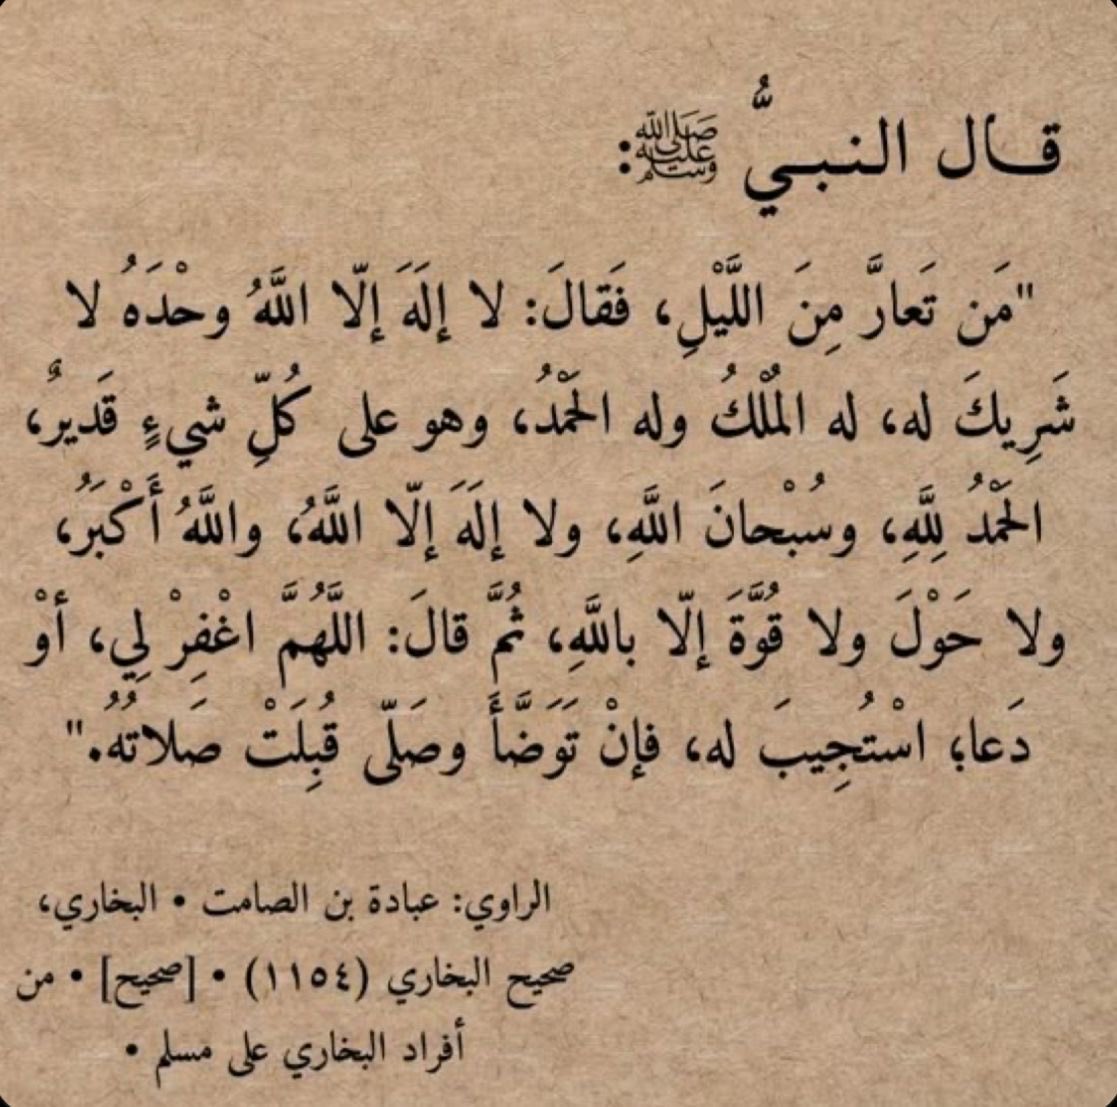 قال النبيُّ ﷺ:
"مَن تَعارَّ مِنَ اللَّيْلِ، فَقالَ: لا إلَهَ إلّا اللَّهُ وحْدَهُ لا
شَرِيكَ له، له المُلْكُ وله الحَمْدُ، وهو على كُلِّ شيءٍ قَدِيرٌ،
الحَمْدُ لِلَّهِ، وسُبْحانَ اللَّهِ، ولا إلَهَ إلّا اللَّهُ، واللَّهُ أَكْبَرُ،
ولا حَوْلَ ولا قُوَّةَ إلّا باللَّهِ، ثُمَّ قالَ: اللَّهُمَّ اغْفِرْ لِي، أوْ
دَعا؛ اسْتُجِيبَ له، فإنْ تَوَضَّأَ وصَلّى قُبِلَتْ صَلاتُهُ."
الراوي: عبادة بن الصامت • البخاري،
صحيح البخاري (١١٥٤) • [صحيح] • من
أفراد البخاري على مسلم •